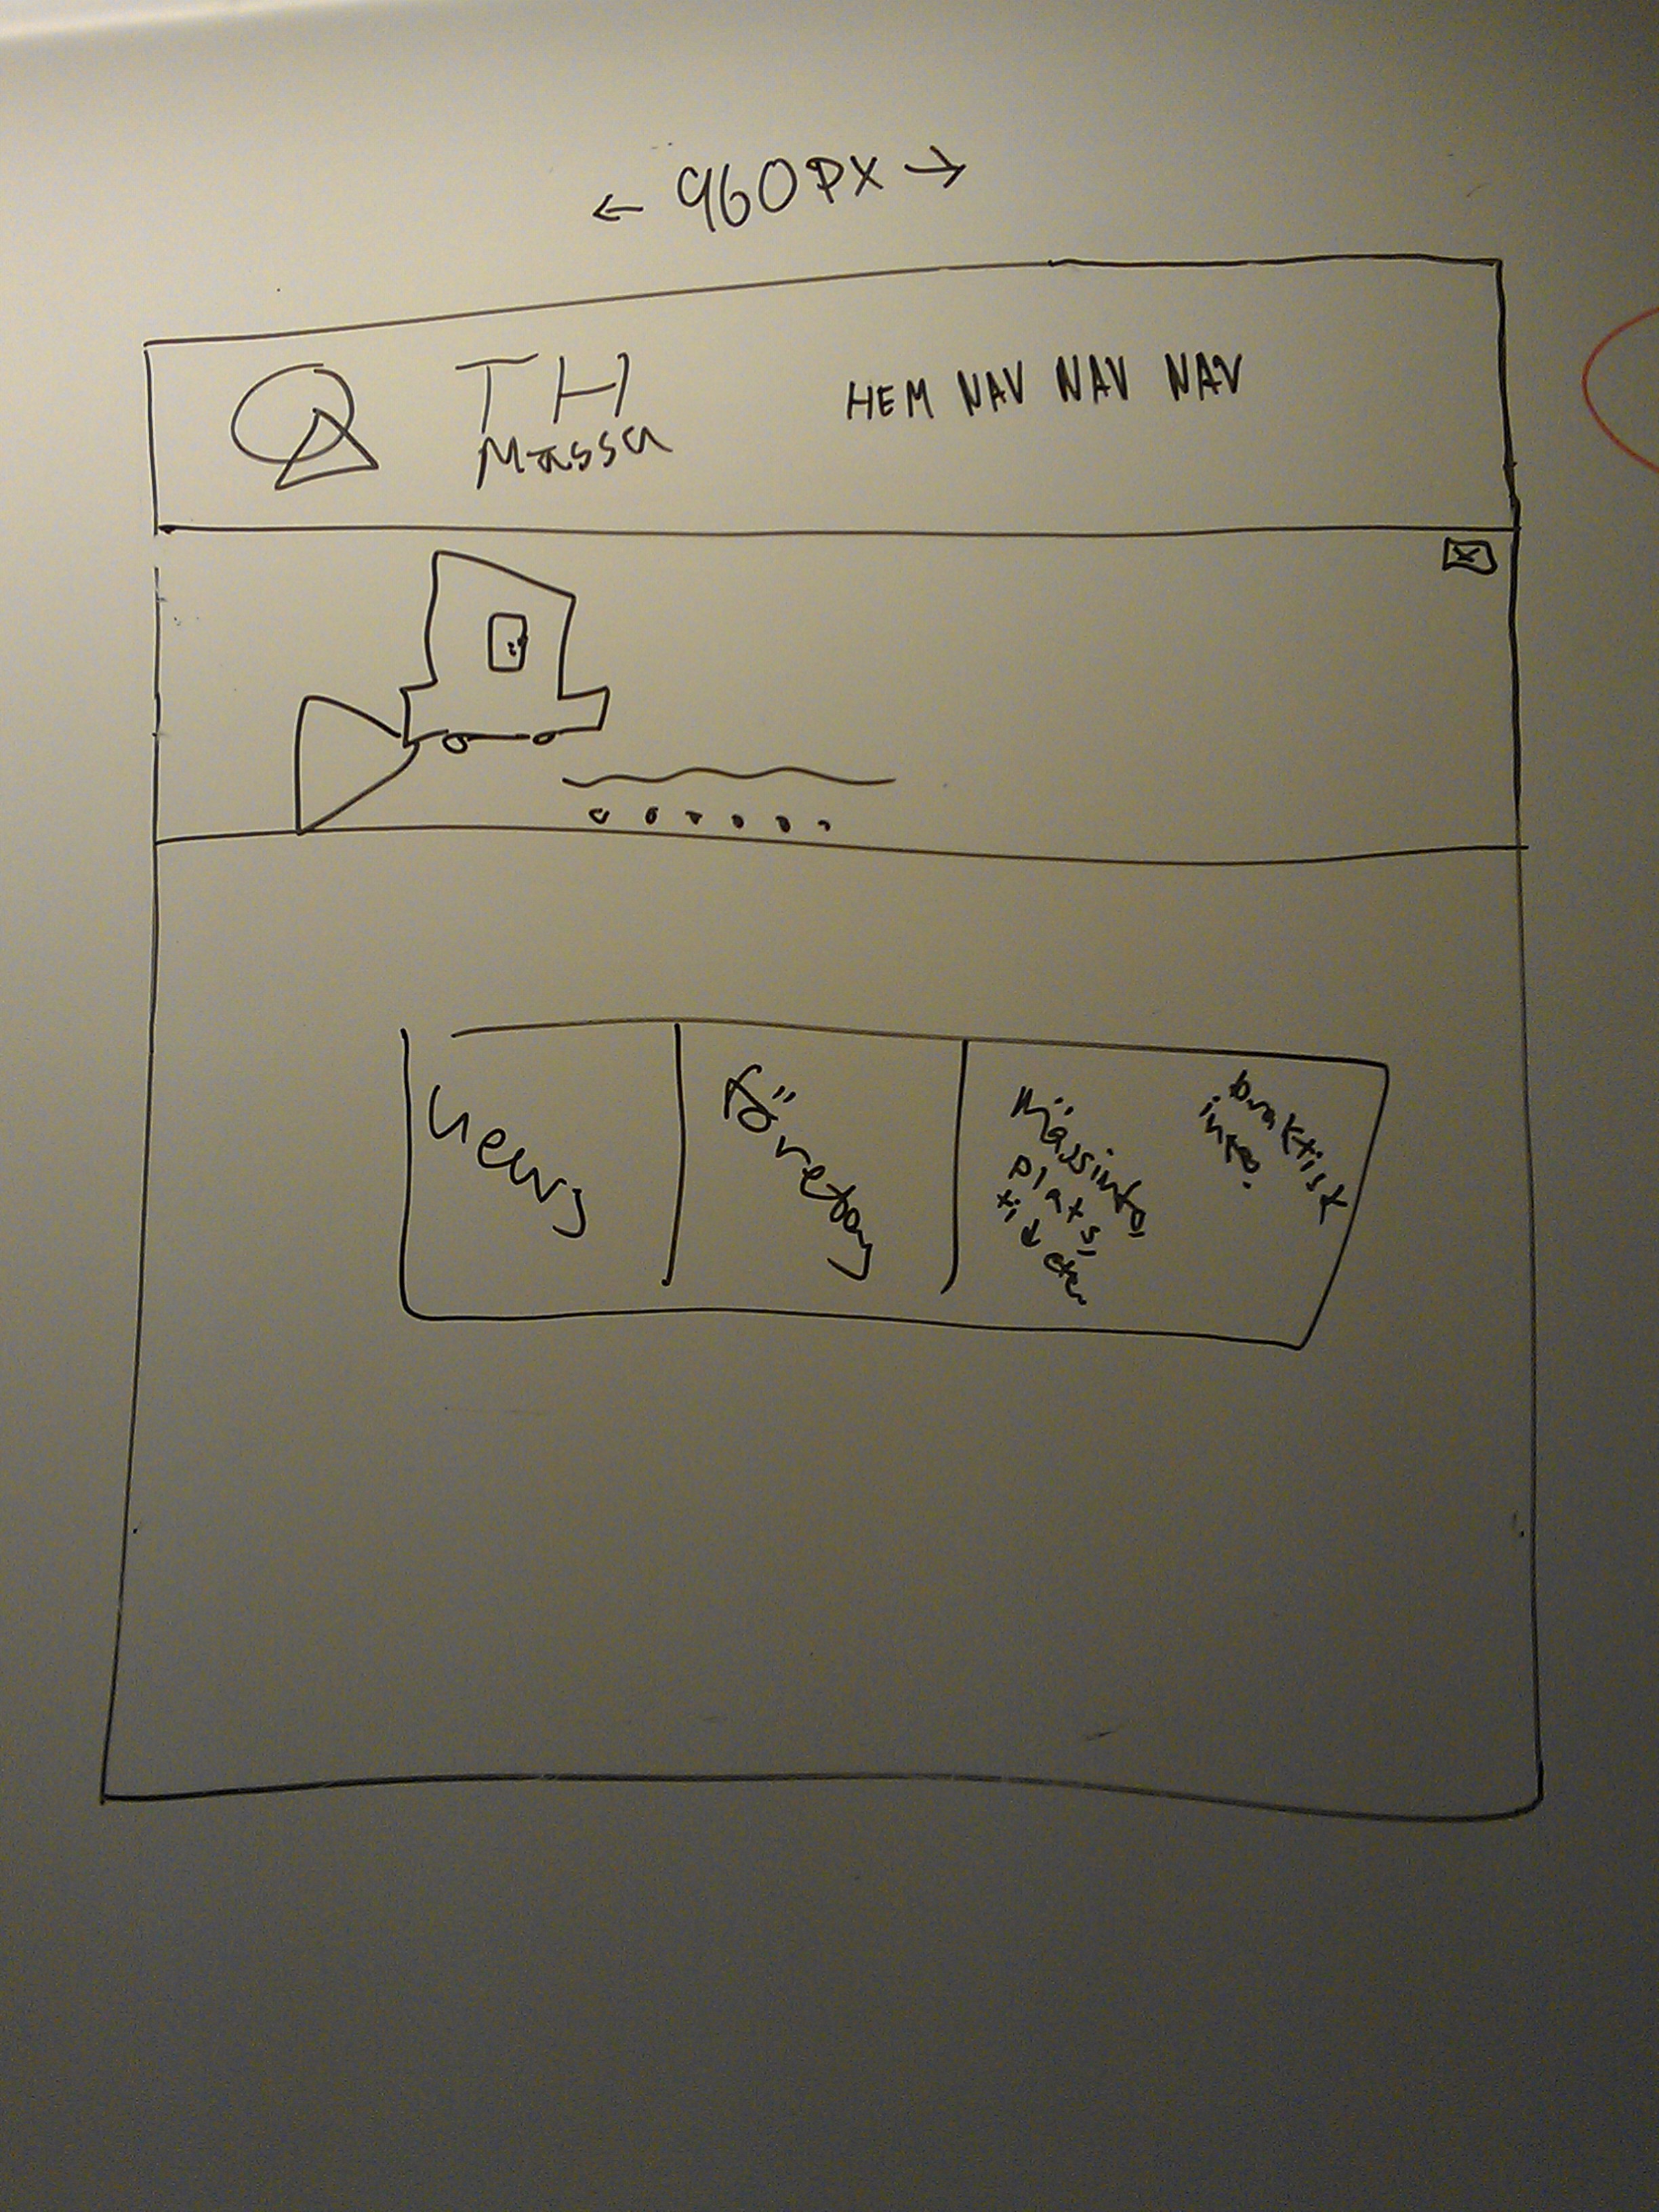 ← 960PX →
TH
Mässa
HEM NAV NAV NAV
X
News
företag
Mässinfo
plats
tid etc
praktisk
info